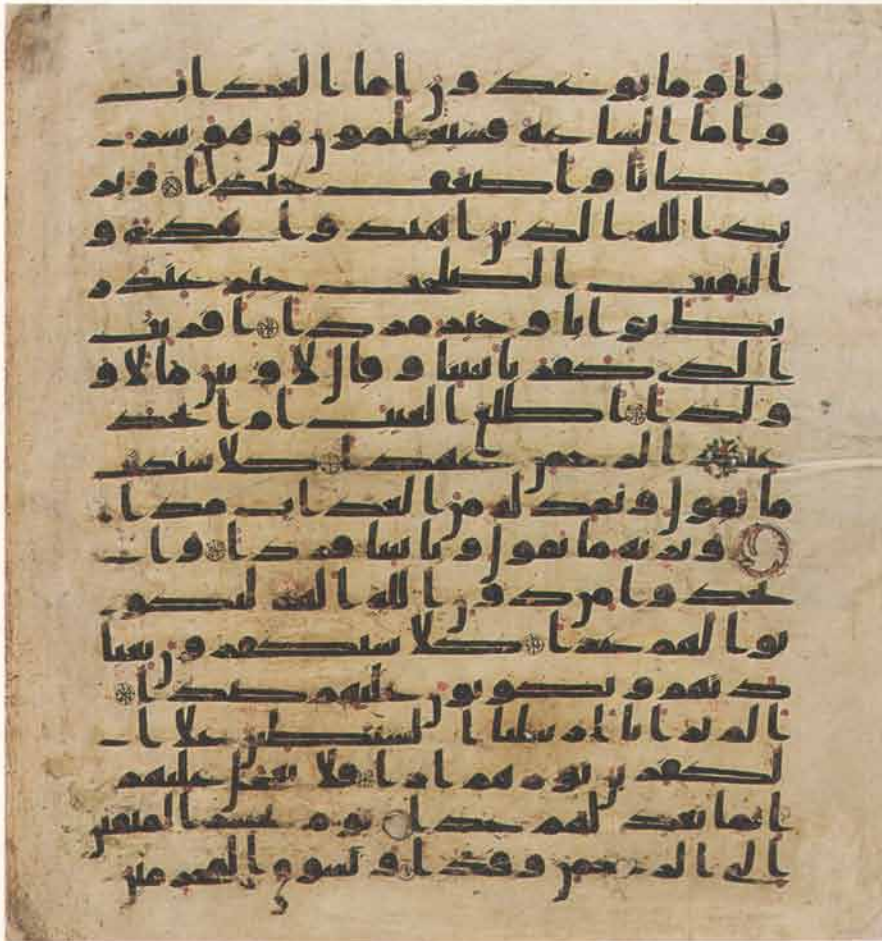 راو ما يوعدون اما العذاب
واما الساعة فسيعلمون من هو شر
مكانا واضعف جندا ويز
يد الله الذين اهتدوا هدى و
البقيت الصلحت خير عند ر
بك ثوابا وخير مردا افريت
الذي كفر بايتنا وقال لاوتين مالا و
ولدا اطلع الغيب ام اتخذ
عند الرحمن عهدا كلا سنكتب
ما يقول ونمد له من العذاب مدا
ونرثه ما يقول وياتينا فردا وا
تخذوا من دون الله الهة ليكو
نوا لهم عزا كلا سيكفرون بعبا
دتهم ويكونون عليهم ضدا
الم تر انا ارسلنا الشيطين علا ا
لكفرين توزهم ازا فلا تعجل عليهم
انما نعد لهم عدا يوم نحشر المتقين
الى الرحمن وفدا ونسوق المجرمين